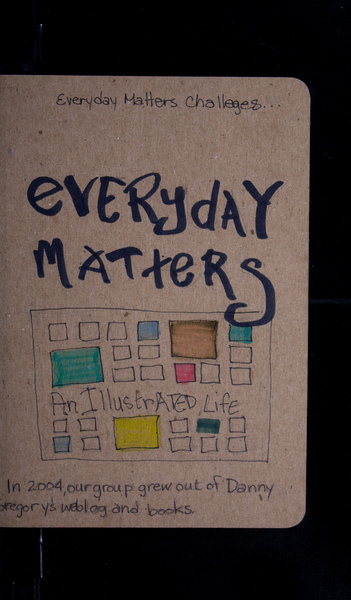 Everyday Matters Challeges...
EVERYdAY
MATTERS
An IllustrATED Life
In 2004, our group grew out of Danny
Gregory's weblog and books.